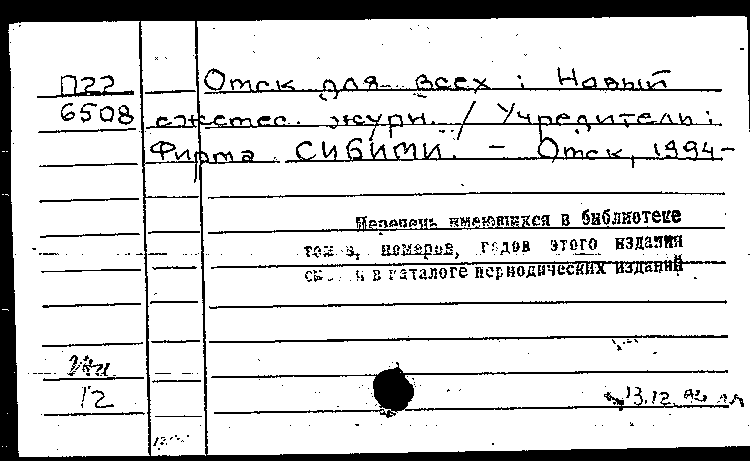 П22 Омск для всех : Новый
6508 ежемес. журн. / Учредитель:
Фирма СИБИМИ. - Омск, 1994-
Перечень имеющихся в библиотеке
томов, номеров, годов этого издания
см. в каталоге периодических изданий
12
13.12.94